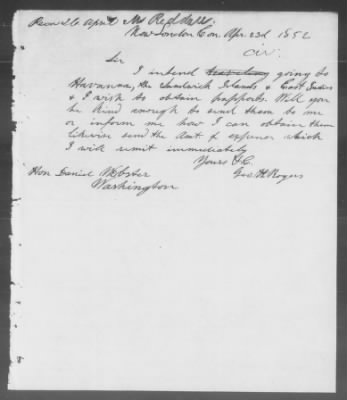 Recvd 26 April Mr Reddall.
New London Con Apr. 23d 1852
Civ.
Sir
I intend traveling going to
Havanna, the Sandwich Islands & East Indies
& I wish to obtain passports. Will you
be kind enough to send them to me
or inform me how I can obtain them
likewise send the Amt of expense which
I will remit immediately
Yours &C.
Hon Daniel Webster Geo H Rogers
Washington